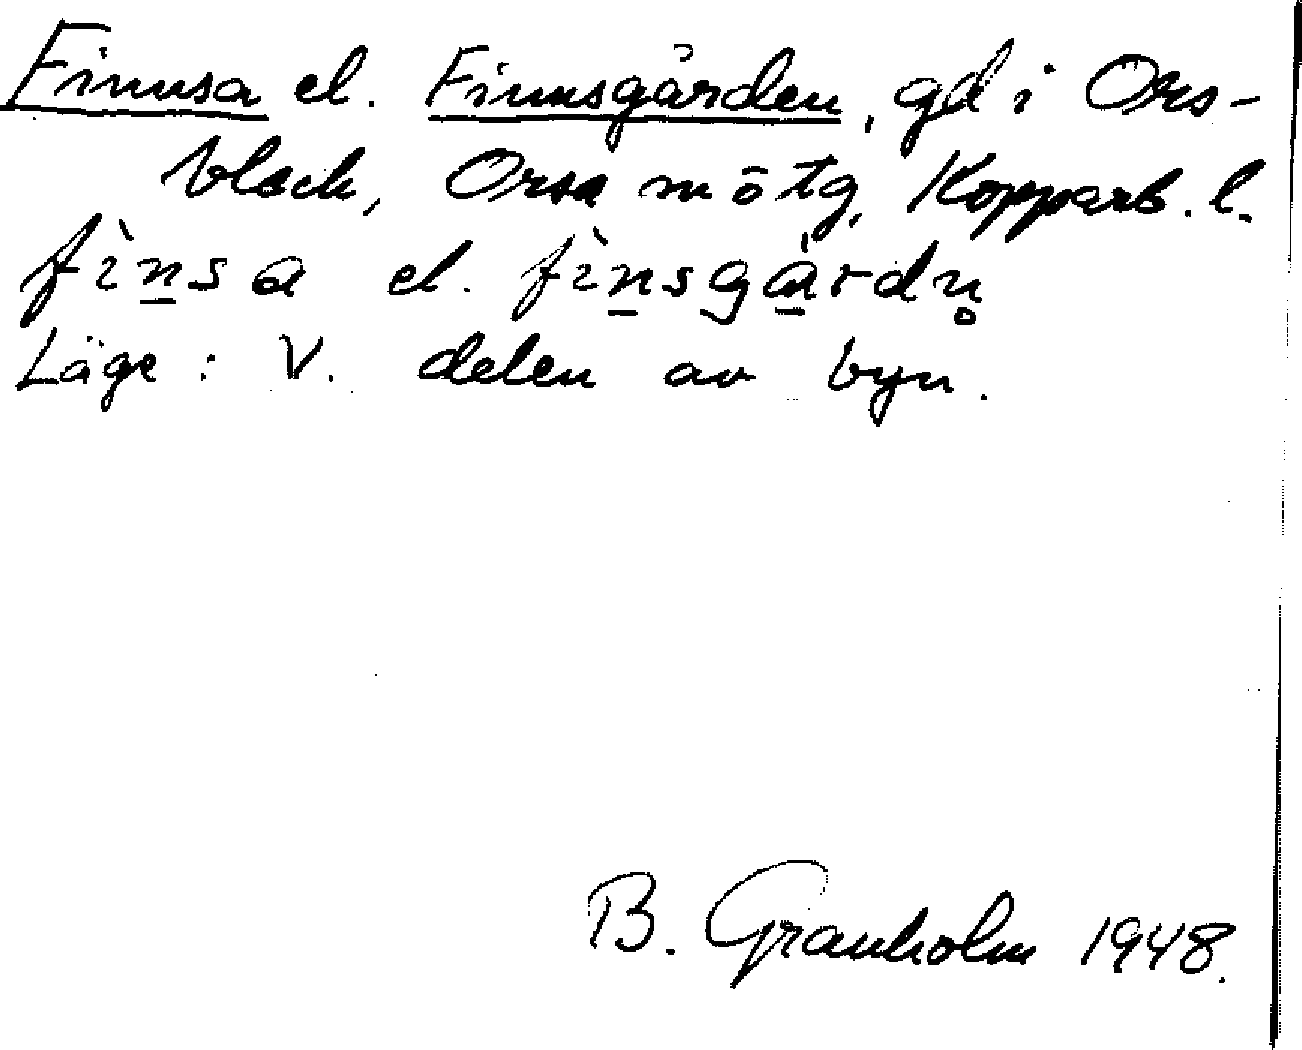 Finnsa el. Finnsgården, gd i Ors-
black, Orsa m ö tg, Kopparb. l.
fìn̲sa el. fìn̲sgà̲rdn̥
Läge: V. delen av byn.
B. Granholm 1948.